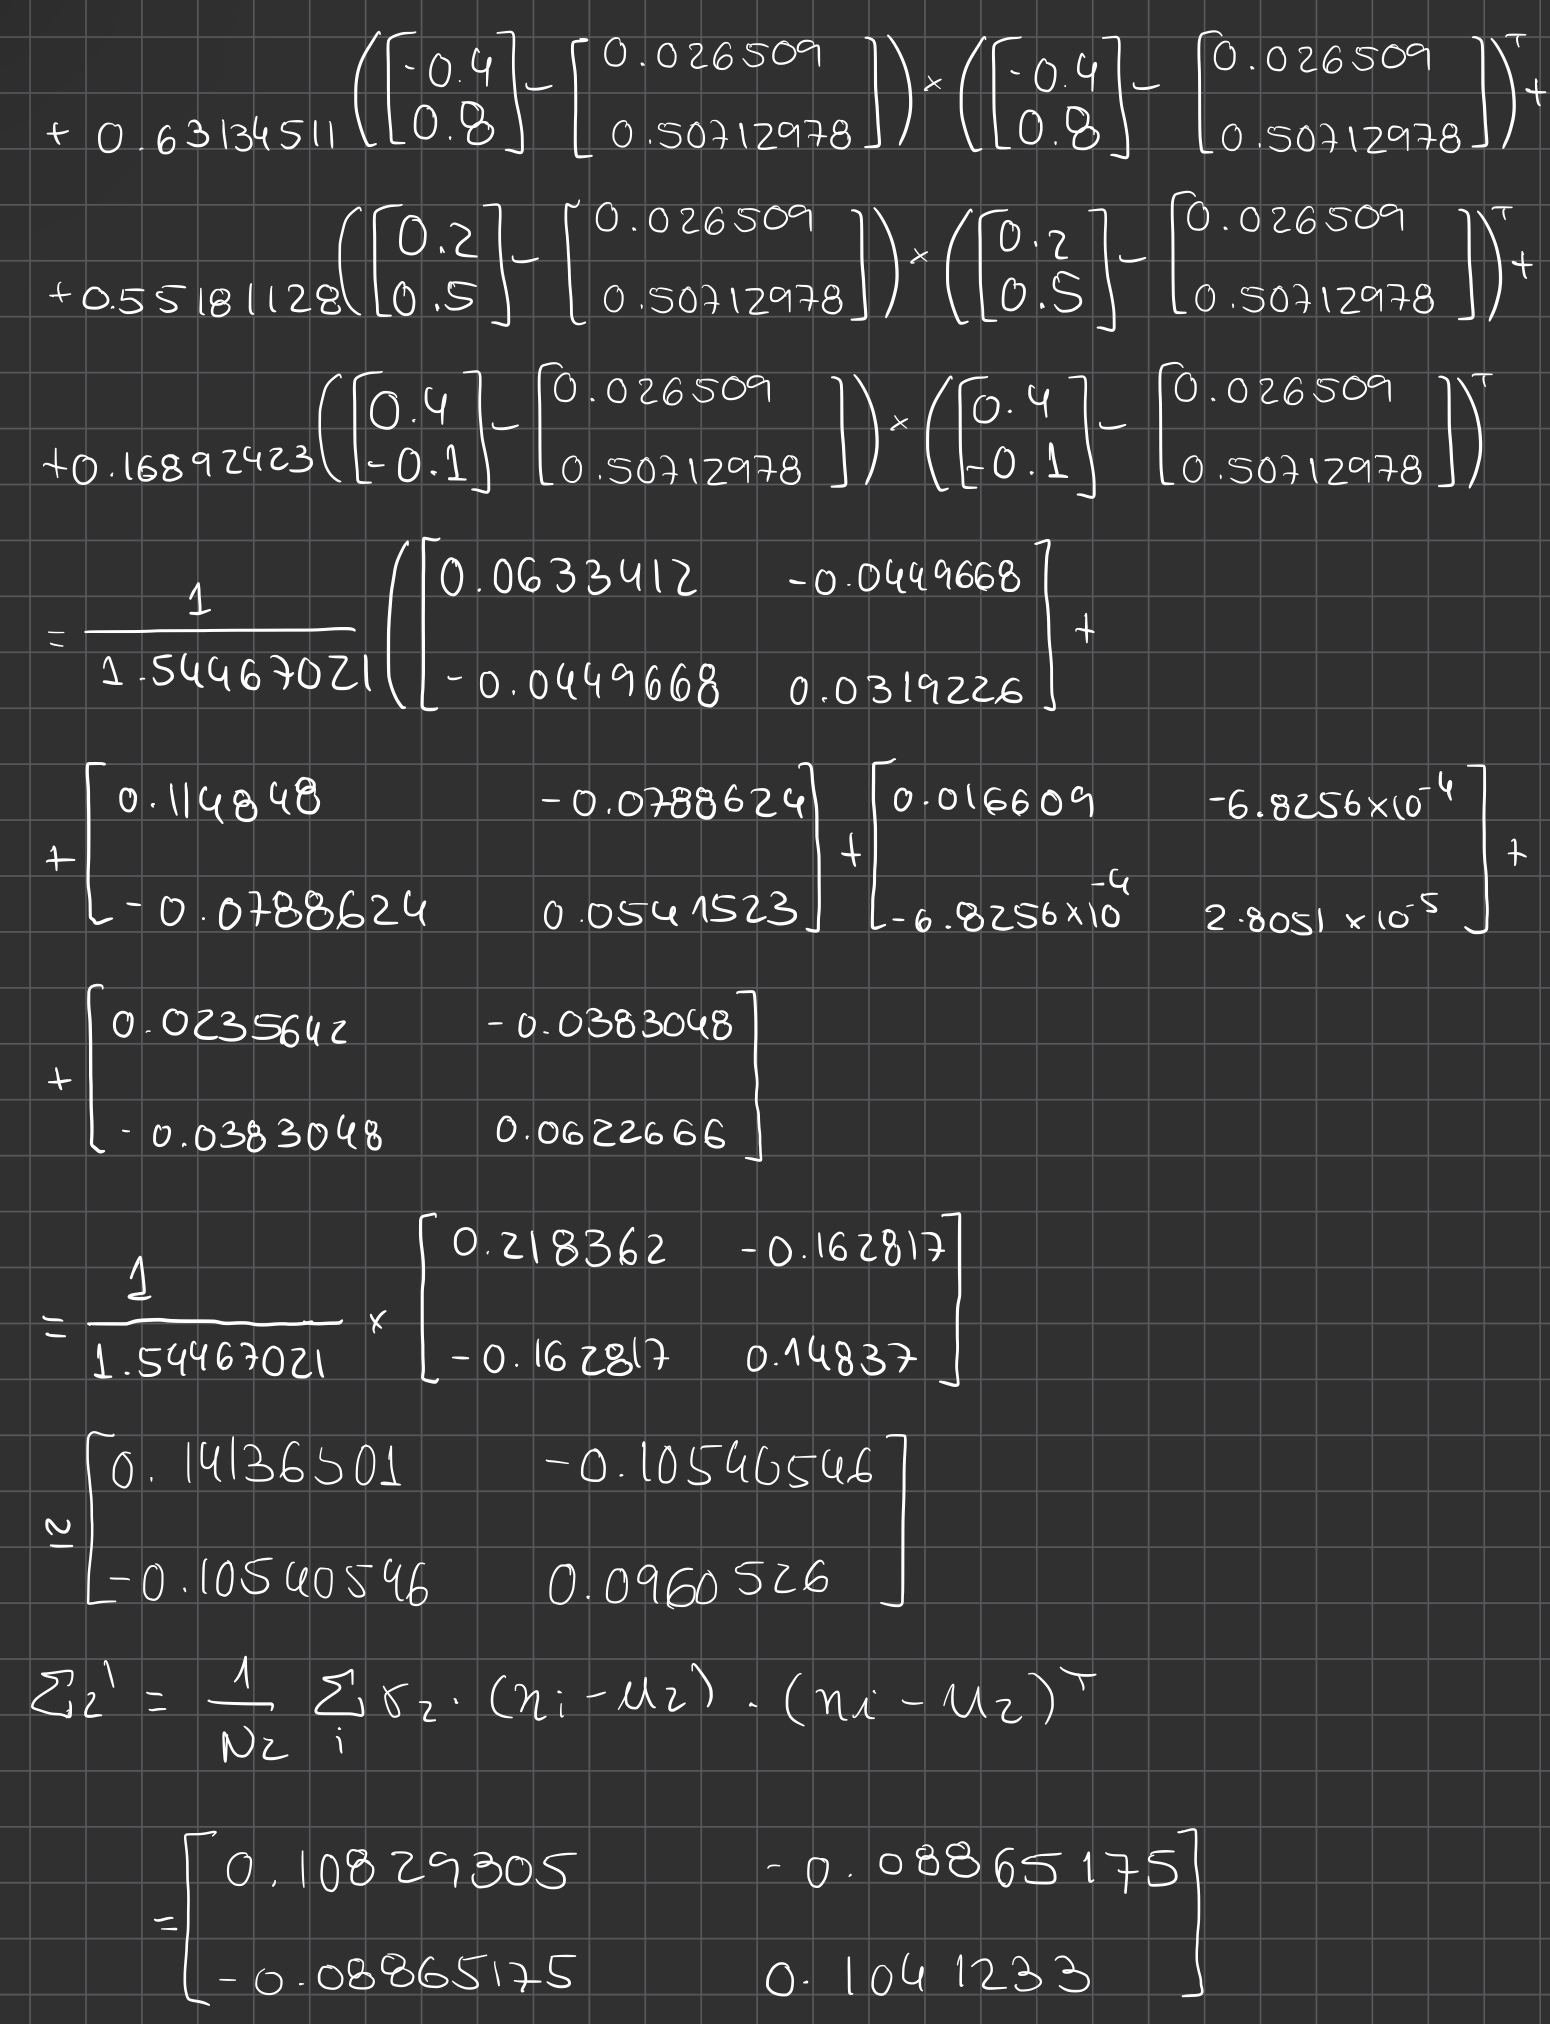 + 0.63134511 ([-0.4 0.8] - [0.026509 0.50712978]) × ([-0.4 0.8] - [0.026509 0.50712978])ᵀ +
+0.55181128 ([0.2 0.5] - [0.026509 0.50712978]) × ([0.2 0.5] - [0.026509 0.50712978])ᵀ +
+0.16892423 ([0.4 -0.1] - [0.026509 0.50712978]) × ([0.4 -0.1] - [0.026509 0.50712978])ᵀ
= 1/1.54467021 ([0.0633412 -0.0449668
-0.0449668 0.0319226] +
+ [0.114848 -0.0788624] + [0.016609 -6.8256×10⁻⁴
-0.0788624 0.0541523] [-6.8256×10⁻⁴ 2.8051×10⁻⁵] +
+ [0.0235642 -0.0383048
-0.0383048 0.0622666]
= 1/1.54467021 × [0.218362 -0.162817
-0.162817 0.14837]
≃ [0.14136501 -0.10540546
-0.10540546 0.0960526]
Σ₂' = 1/N₂ Σᵢ γ₂ · (xi - u₂) · (xi - u₂)ᵀ
= [0.10829305 -0.08865175
-0.08865175 0.1041233]